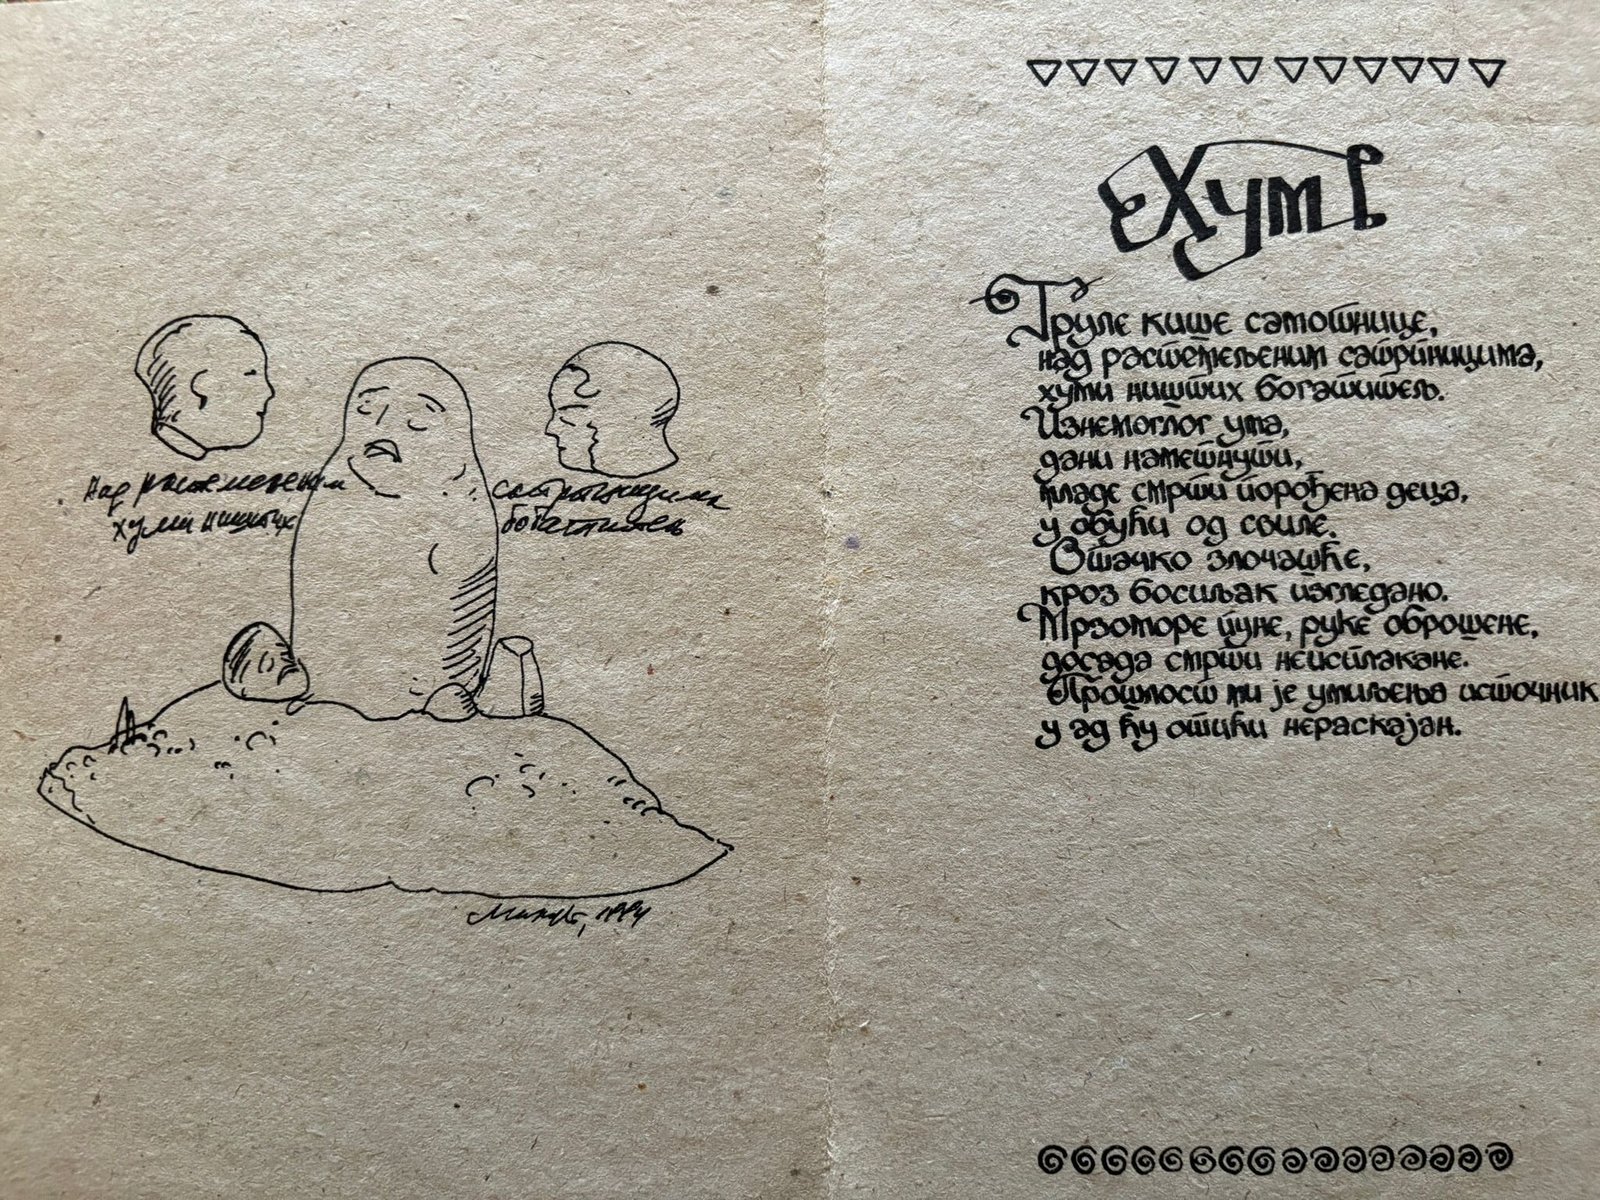 над растемељеним
хуми ништих
сатрпницима
богатитељ
1994
Хум
Труле кише самотнице,
над растемељеним сатрпницима,
хуми ништих богатитељ.
Изнемоглог ума,
дани наметнути,
младе стрпи порођена деца,
у обући од свиле.
Отачко злочашће,
кроз босиљак изгледано.
Мрзоморе пуне, руке оброшене,
досада стрпи неисплакане.
Прошлост ми је умиљења источник
у ад ћу отићи нераскајан.